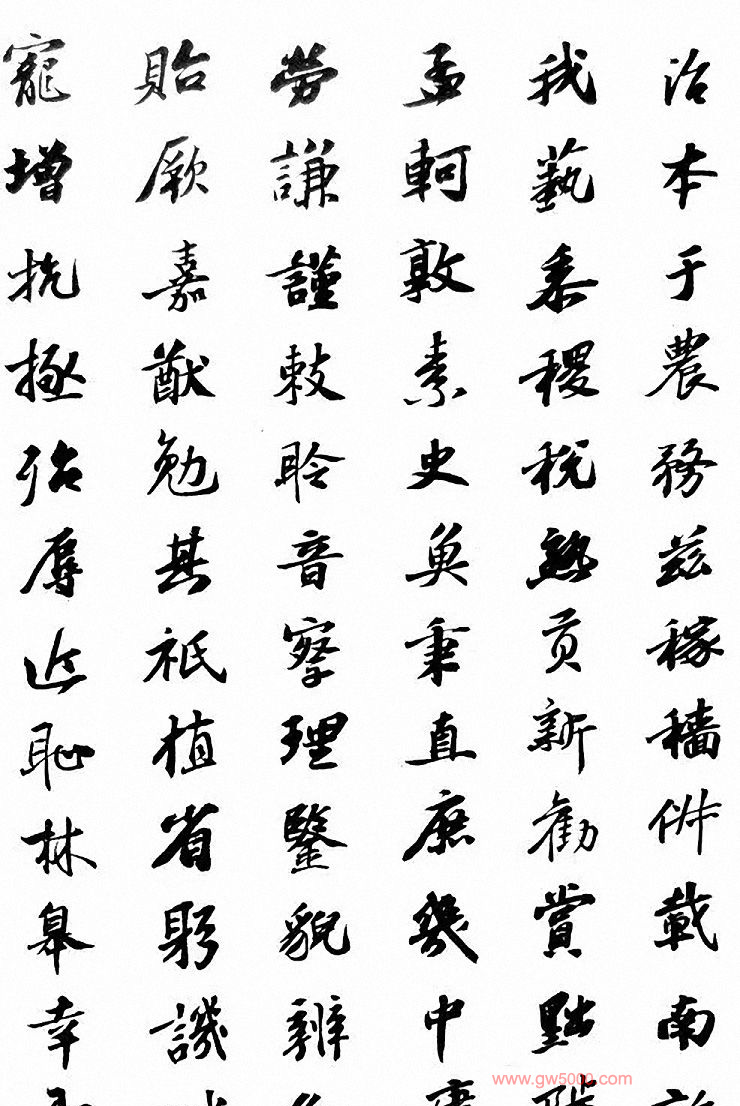 治本于農務茲稼穡俶載南
我藝黍稷稅熟貢新勸賞黜
孟軻敦素史魚秉直庶幾中
勞謙謹敕聆音察理鑒貌辨
貽厥嘉猷勉其祗植省躬譏
寵增抗極殆辱近恥林皋幸
www.gw5000.com